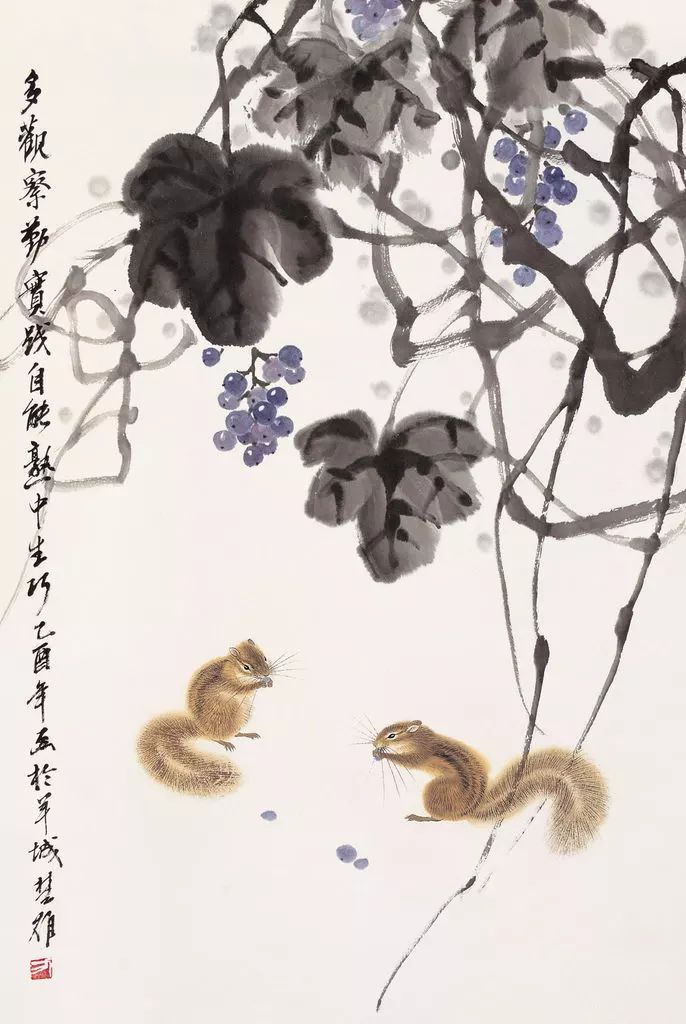 多觀察勤實踐自能熟中生巧乙酉年画於羊城楚雄